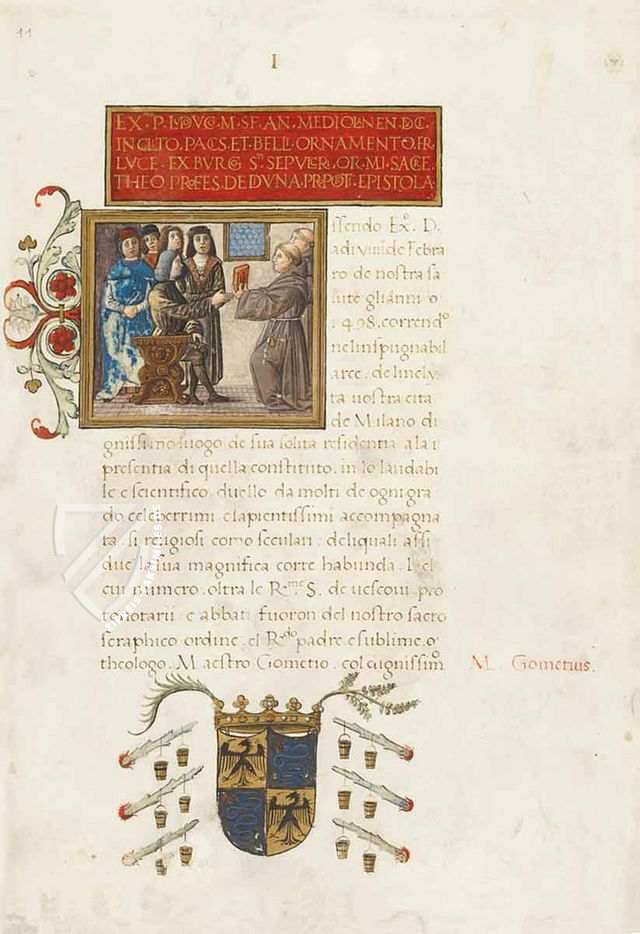 11
I
EX.TI P. LVDVCO. M. SF. AN. MEDIOLANEN. DVC.
INCLITO. PACIS. ET. BELLI. ORNAMENTO. FR.
LVCE. EX BVRGO S.TI SEPVLCRI. OR. MI. SACRE.
THEO PROFES. DE DIVINA. PROPOT. EPISTOLA
ssendo Exº. D.
a di viiij. de Febra
ro de nostra sa
lute gli anni o
1498. correndº
nel inspugnabil
arce. de linely
ta uostra cita
de Milano di
gnissimo luogo de sua solita residentia a la i
presentia di quella constituto. in lo laudabi
le e scientifico duello da molti de ogni gra
do celeberrimi e sapientissimi accompagna
ta. si religiosi como seculari: deliquali assi
due la sua magnifica corte habunda. Del
cui numero. oltra le R.me S. de uescoui. pro
tonotarii e abbati fuoron del nostro sacro
seraphico ordine. el R.do padre e sublime. º
theologo. Maestro Gometio. col dignissimº
M. Gometius.